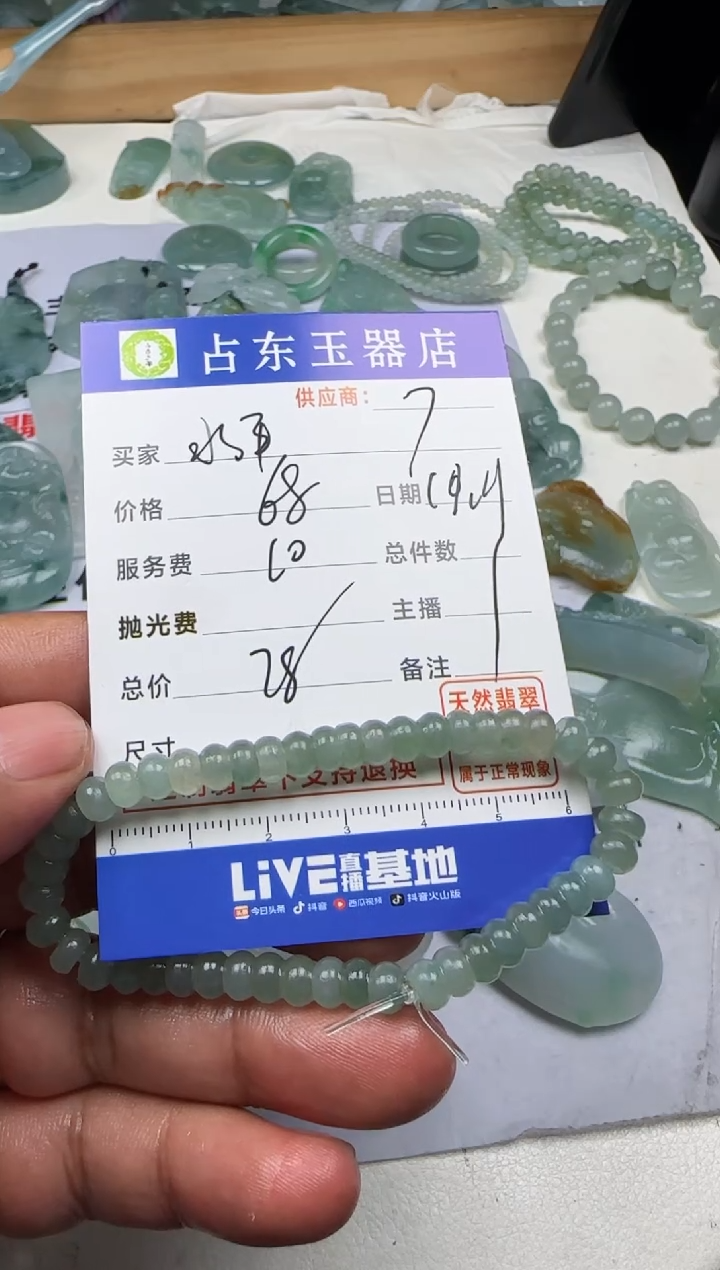 占东玉器店
供应商: 7
买家
价格 68 日期
服务费 10 总件数
抛光费 / 主播
总价 78 备注
尺寸
天然翡翠
不支持退换
属于正常现象
0 1 2 3 4 5 6
LiVE直播基地
今日头条 抖音 西瓜视频 抖音火山版